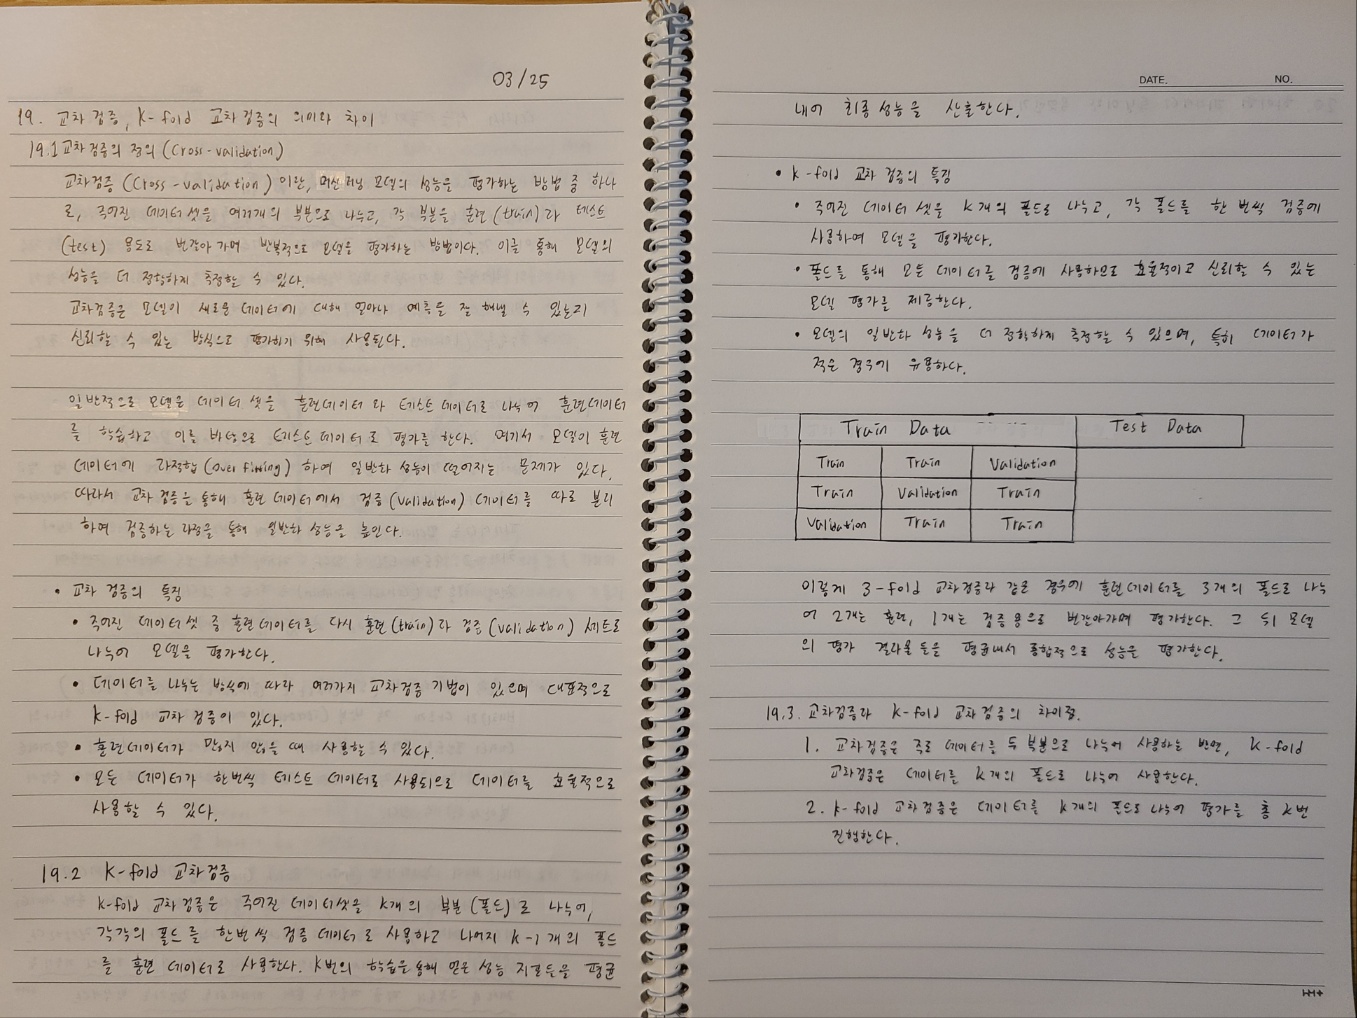 03/25
19. 교차 검증, K-fold 교차검증의 의미와 차이
19.1 교차 검증의 정의 (Cross-validation)
교차검증 (Cross-validation) 이란, 머신러닝 모델의 성능을 평가하는 방법 중 하나
로, 주어진 데이터 셋을 여러개의 부분으로 나누고, 각 부분을 훈련(train)과 테스트
(test) 용도로 번갈아 가며 반복적으로 모델을 평가하는 방법이다. 이를 통해 모델의
성능을 더 정확하게 측정할 수 있다.
교차검증은 모델이 새로운 데이터에 대해 얼마나 예측을 잘 해낼 수 있는지
신뢰할 수 있는 방식으로 평가하기 위해 사용된다.
일반적으로 모델은 데이터 셋을 훈련데이터와 테스트 데이터로 나누어 훈련데이터
를 학습하고 이를 바탕으로 테스트 데이터로 평가를 한다. 여기서 모델이 훈련
데이터에 과적합(over fitting) 하여 일반화 성능이 떨어지는 문제가 있다.
따라서 교차 검증을 통해 훈련 데이터에서 검증(validation) 데이터를 따로 분리
하여 검증하는 과정을 통해 일반화 성능을 높인다.
• 교차 검증의 특징
• 주어진 데이터셋 중 훈련데이터를 다시 훈련(train)과 검증(validation) 세트로
나누어 모델을 평가한다.
• 데이터를 나누는 방식에 따라 여러가지 교차검증 기법이 있으며 대표적으로
K-fold 교차 검증이 있다.
• 훈련데이터가 많지 않을 때 사용할 수 있다.
• 모든 데이터가 한번씩 테스트 데이터로 사용되므로 데이터를 효율적으로
사용할 수 있다.
19.2 K-fold 교차검증
K-fold 교차 검증은 주어진 데이터셋을 K개의 부분(폴드)로 나누어,
각각의 폴드를 한번씩 검증 데이터로 사용하고 나머지 K-1개의 폴드
를 훈련 데이터로 사용한다. K번의 학습을 통해 얻은 성능 지표들을 평균
DATE. NO.
내어 최종 성능을 산출한다.
• K-fold 교차 검증의 특징
• 주어진 데이터 셋을 K개의 폴드로 나누고, 각 폴드를 한 번씩 검증에
사용하여 모델을 평가한다.
• 폴드를 통해 모든 데이터를 검증에 사용하므로 효율적이고 신뢰할 수 있는
모델 평가를 제공한다.
• 모델의 일반화 성능을 더 정확하게 측정할 수 있으며, 특히 데이터가
적은 경우에 유용하다.
Train Data Test Data
Train Train Validation
Train Validation Train
Validation Train Train
이렇게 3-fold 교차검증과 같은 경우에 훈련 데이터를 3개의 폴드로 나누
어 2개는 훈련, 1개는 검증용으로 번갈아가며 평가한다. 그 뒤 모델
의 평가 결과물들을 평균내서 종합적으로 성능을 평가한다.
19.3. 교차검증과 K-fold 교차검증의 차이점.
1. 교차검증은 주로 데이터를 두 부분으로 나누어 사용하는 반면, K-fold
교차검증은 데이터를 K개의 폴드로 나누어 사용한다.
2. K-fold 교차검증은 데이터를 K개의 폴드로 나누어 평가를 총 K번
진행한다.